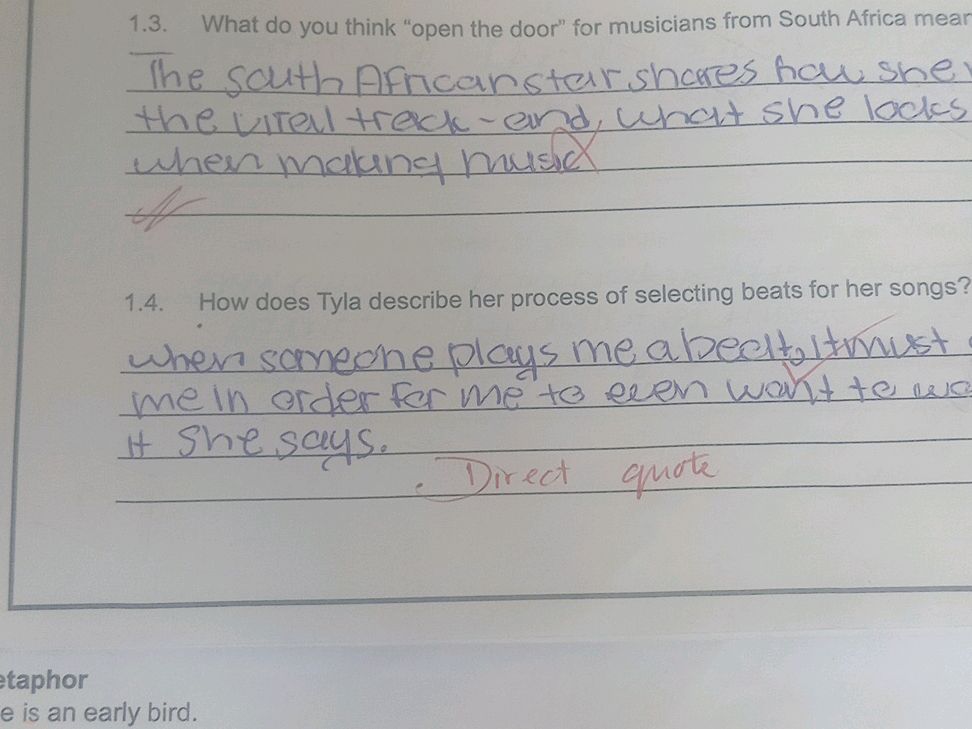 1.3. What do you think "open the door" for musicians from South Africa mean
The South African star shares how she
the viral track - and, what she looks
when making music
1.4. How does Tyla describe her process of selecting beats for her songs?
when someone plays me a beat, It must
me in order for me to even want to
it she says.
Direct quote
etaphor
e is an early bird.